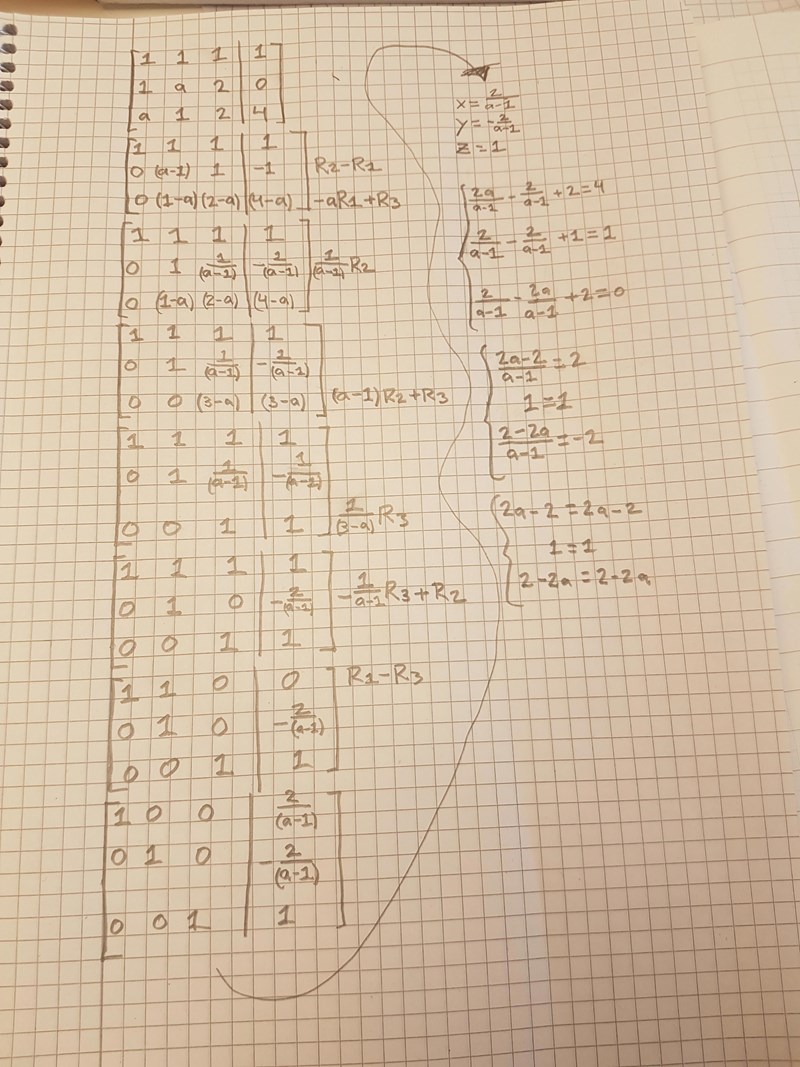 [1 1 1 | 1]
[1 a 2 | 0]
[a 1 2 | 4]
[1 1 1 | 1]
[0 (a-1) 1 | -1] R2-R1
[0 (1-a) (2-a) | (4-a)] -aR1+R3
[1 1 1 | 1]
[0 1 1/(a-1) | -1/(a-1)] 1/(a-1) R2
[0 (1-a) (2-a) | (4-a)]
[1 1 1 | 1]
[0 1 1/(a-1) | -1/(a-1)]
[0 0 (3-a) | (3-a)] (a-1)R2+R3
[1 1 1 | 1]
[0 1 1/(a-1) | -1/(a-1)]
[0 0 1 | 1] 1/(3-a) R3
[1 1 1 | 1]
[0 1 0 | -2/(a-1)] -1/(a-1) R3+R2
[0 0 1 | 1]
[1 1 0 | 0] R1-R3
[0 1 0 | -2/(a-1)]
[0 0 1 | 1]
[1 0 0 | 2/(a-1)]
[0 1 0 | -2/(a-1)]
[0 0 1 | 1]
x = 2/(a-1)
y = -2/(a-1)
z = 1
{ 2a/(a-1) - 2/(a-1) + 2 = 4
2/(a-1) - 2/(a-1) + 1 = 1
2/(a-1) - 2a/(a-1) + 2 = 0
{ (2a-2)/(a-1) = 2
1 = 1
(2-2a)/(a-1) = -2
{ 2a-2 = 2a-2
1 = 1
2-2a = 2-2a